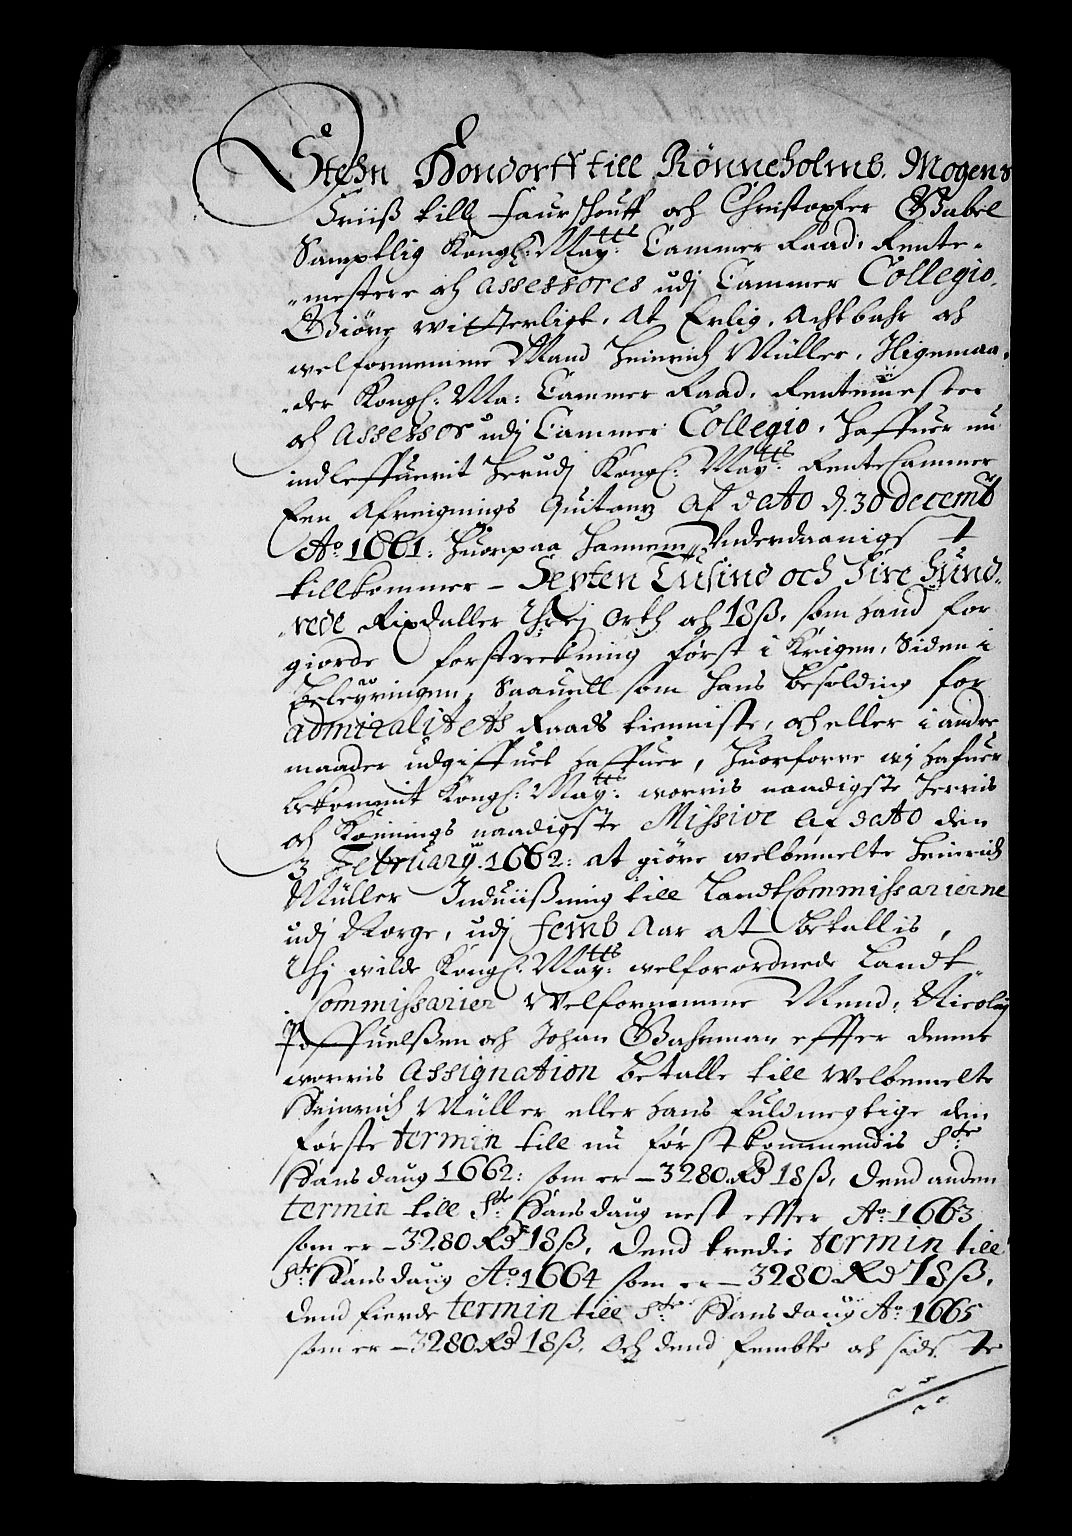 Stehn Hondorff till Rönneholmb. Mogens
Friiß till Faurschouff och Christopfer Gabel
Samptlig Kongl: May:tts Cammer Raad, Rente-
mestere och Assessores udj Cammer Collegio.
Giöre witterligt, At Erlig, Achtbahr och
welfornemme Mand Heinrich Müller, Höigemaa-
der Kongl: Ma: Cammer Raad, Rentemester
och Assessor udj Cammer Collegio, Haffuer nu
indleffuerit herudj Kongl: May:tts RenteCammer
Een Afreignings Quitantz Af dato d. 30 decemb
Ao. 1661: Huorpaa hannem Underdaanigst
tillkommer - Sexten Tusind och Fire Hund-
rede Rixdaller Threj Orth och 18 ß, som hand for
giorde forstreckning først i Krigen, Siden i
Beleyringen, Saauell som hans besolding for
Admiralitets Raads tienniste, och eller i andre
maader udgiffuet haffuer, Huorforre wj hafuer
bekommit Kongl: May:tts worris naadigste Herris
och Konnings naadigste Missive Af dato den
3 February 1662: at giöre welbemelte Heinrich
Müller Induiißning till LandtCommissarierne
udj Norge, udj femb Aar at betallis,
Thj wilde Kongl: May:tts welforordnede Landt
Commissarier Welfornemme Mend, Nicolaj
Poffuelßen och Johan Gahrman effter denne
worris Assignation betalle till Welbemelte
Heinrich Müller eller hans fuldmegtige den
første termin till nu førstkommendis S:te
Hansdaug 1662: som er - 3280 Rd 18 ß, Dend anden
termin till S:te Hansdaug nest effter Ao. 1663
som er - 3280 Rd 18 ß, Dend tredie termin till
S:te Hansdaug Ao. 1664 som er - 3280 Rd 18 ß,
Dend fierde termin till S:te Hansdaug Ao. 1665
som er - 3280 Rd 18 ß, Och dend fembte och sidste